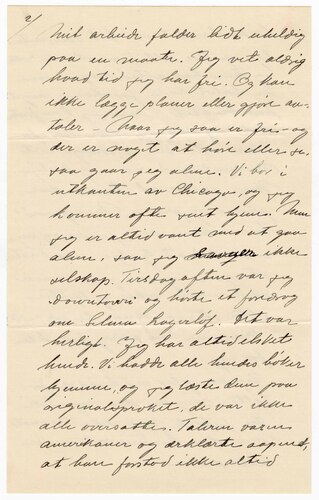 2/
Mit arbeide falder lidt uheldig
paa en maate. Jeg vet aldrig
hvad tid jeg har fri. Og kan
ikke lægge planer eller gjøre av-
taler – Naar jeg saa er fri – og
der er noget at høre eller se,
saa gaar jeg alene. Vi bor i
utkanten av Chicago, og jeg
kommer ofte sent hjem. Men
jeg er altid vant med at gaa
alene, saa jeg ikke
selskap. Tirsdag aften var jeg
downtown og hørte et foredrag
om Selma Lagerlöf. Det var
herligt. Jeg har altid elsket
hende. Vi hadde alle hendes bøker
hjemme, og jeg læste dem paa
originalsproket, de var ikke
alle oversatte. Taleren var en
amerikaner og erklærte aapenlyst,
at han forstod ikke altid